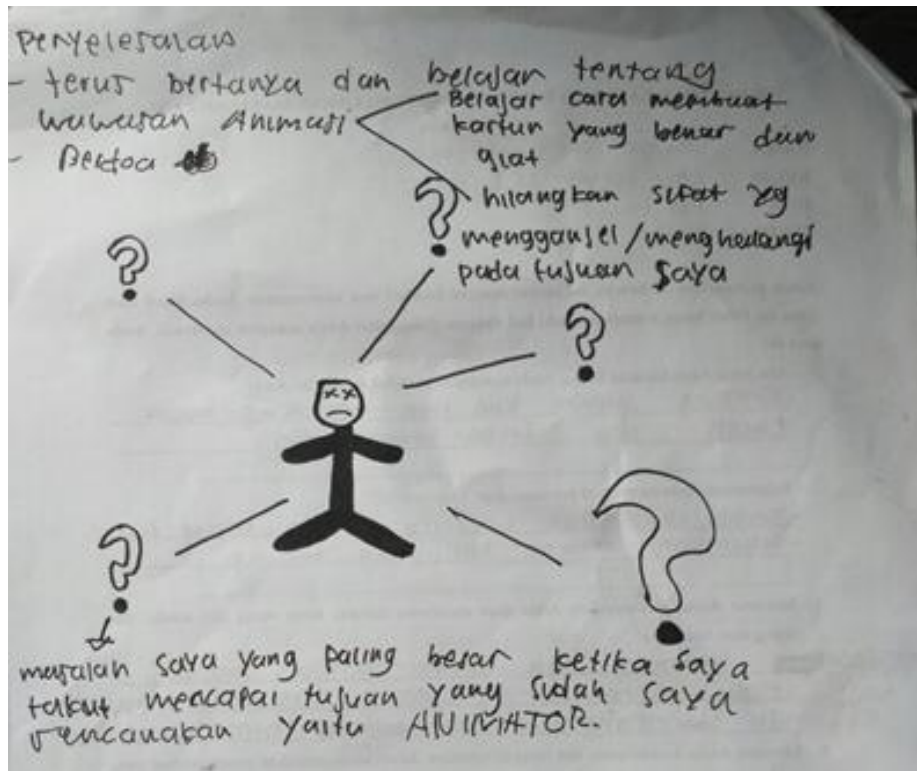 Penyelesaian
- terus bertanya dan belajar tentang
wawasan Animasi
Belajar cara membuat
kartun yang benar dan
giat
- Berdoa
hilangkan sifat yg
menggangu/menghalangi
pada tujuan saya
?
?
?
?
?
masalah saya yang paling besar ketika saya
takut mencapai tujuan yang sudah saya
rencanakan yaitu ANIMATOR.